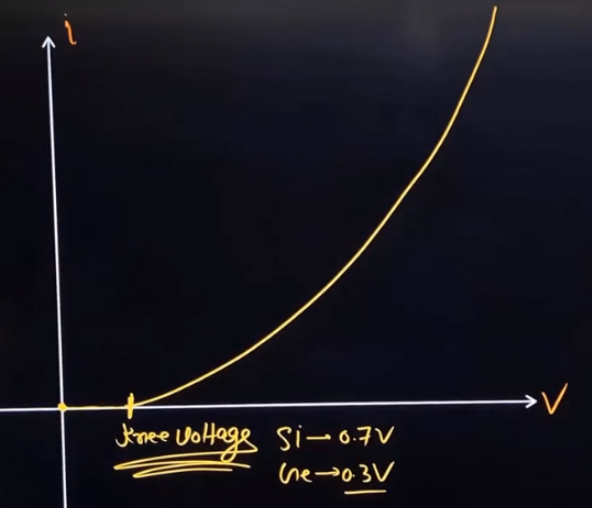 i
V
Knee Voltage Si → 0.7V
Ge → 0.3V